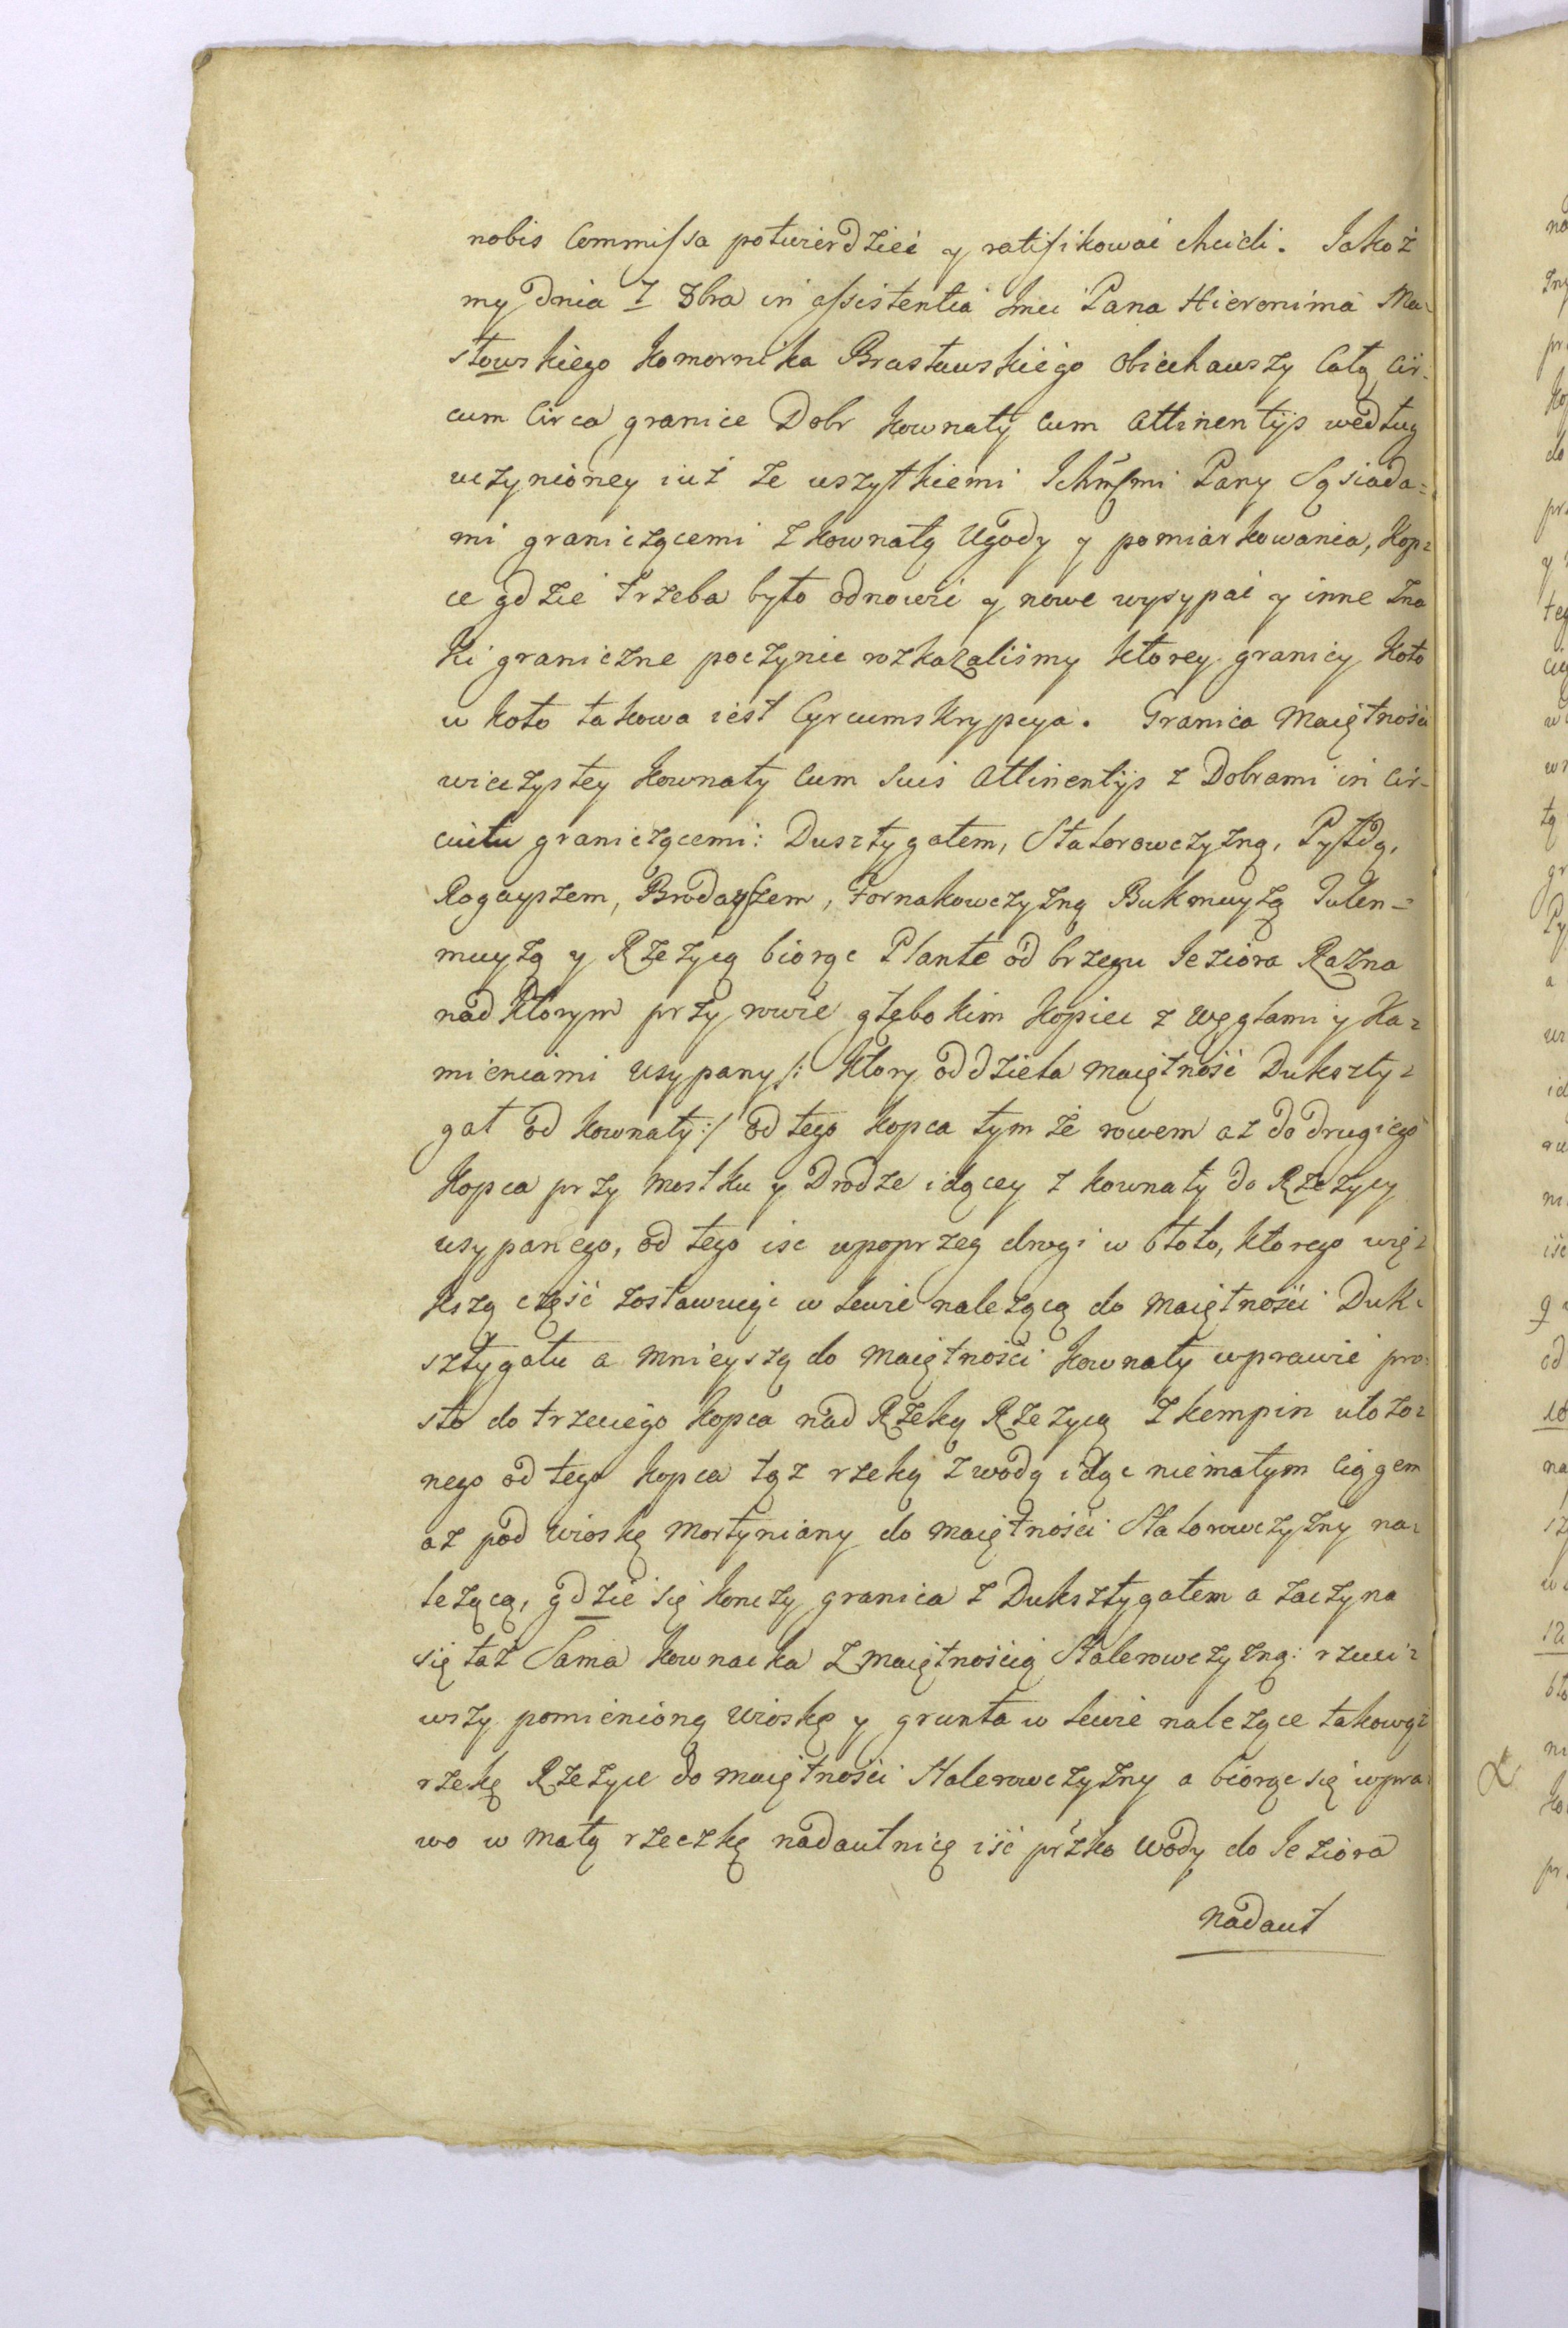 nobis Commissa potwierdzieć y ratifikować chcieli. Jakoż
my dnia 7 8bra in assistentia Jmci Pana Hieronima Ma=
słowskiego Komornika Brasławskiego obiechawszy Całą Cir=
cum Circa granice Dobr Kownaty Cum Attinentijs według
uczynioney iuż ze wszytkiemi Ichmćmi Pany Sąsiada=
mi graniczącemi z Kownatą Ugody y pomiarkowania, Kop=
ce gdzie trzeba było odnowić y nowe wysypać y inne Zna
ki graniczne poczynić rozkazaliśmy ktorey granicy koło
w koło takowa iest Cyrcumskrypcya. Granica Maiętnośći
wieczystey Kownaty Cum Suis Attinentijs z Dobrami in Cir=
cuitu graniczącemi: Dusztygałem, Stalerowczyzną, Pyłdą,
Rogayszem, Brodayszem, Fornakowczyzną Bukmuyżą Julen=
muyżą y Rzeżycą biorąc Plantę od brzegu Jeziora Razna
nad ktorym przy rowie głębokim Kopiec z Węglami y Ka=
mieniami usypany /: ktory oddziela maiętność Duksty=
gał od Kownaty :/ od tego kopca tym że rowem aż do drugiego
Kopca przy mostku y Drodze idącey z Kownaty do Rzeżycy
usypanego, od tego iść wpoprzeg drogi w błoto, ktorego wię=
kszą część zostawuiąc w lewie należącą do maiętnośći Duk=
sztygału a mnieyszą do maiętnośći Kownaty wprawie pro=
sto do trzeciego Kopca nad Rzeką Rzeżycą z kempin ułożo=
nego od tego kopca tąż rzeką z wodą idąc niemałym ciągem
aż pod wioskę Mortyniany do maiętnośći Stalerowczyzny na=
leżącą, gdzie się konczy granica z Duksztygałem a zaczyna
się taż Sama Kownacka z maiętnośćią Stalerowczyzną: rzuci=
wszy pomienioną wioskę y grunta w lewie należące takowąż
rzekę Rzeżyce do maiętnośći Stalerowczyzny a biorąc się wpra=
wo w małą rzeczkę nadautnicę iść przko wody do Jeziora
Nadaut